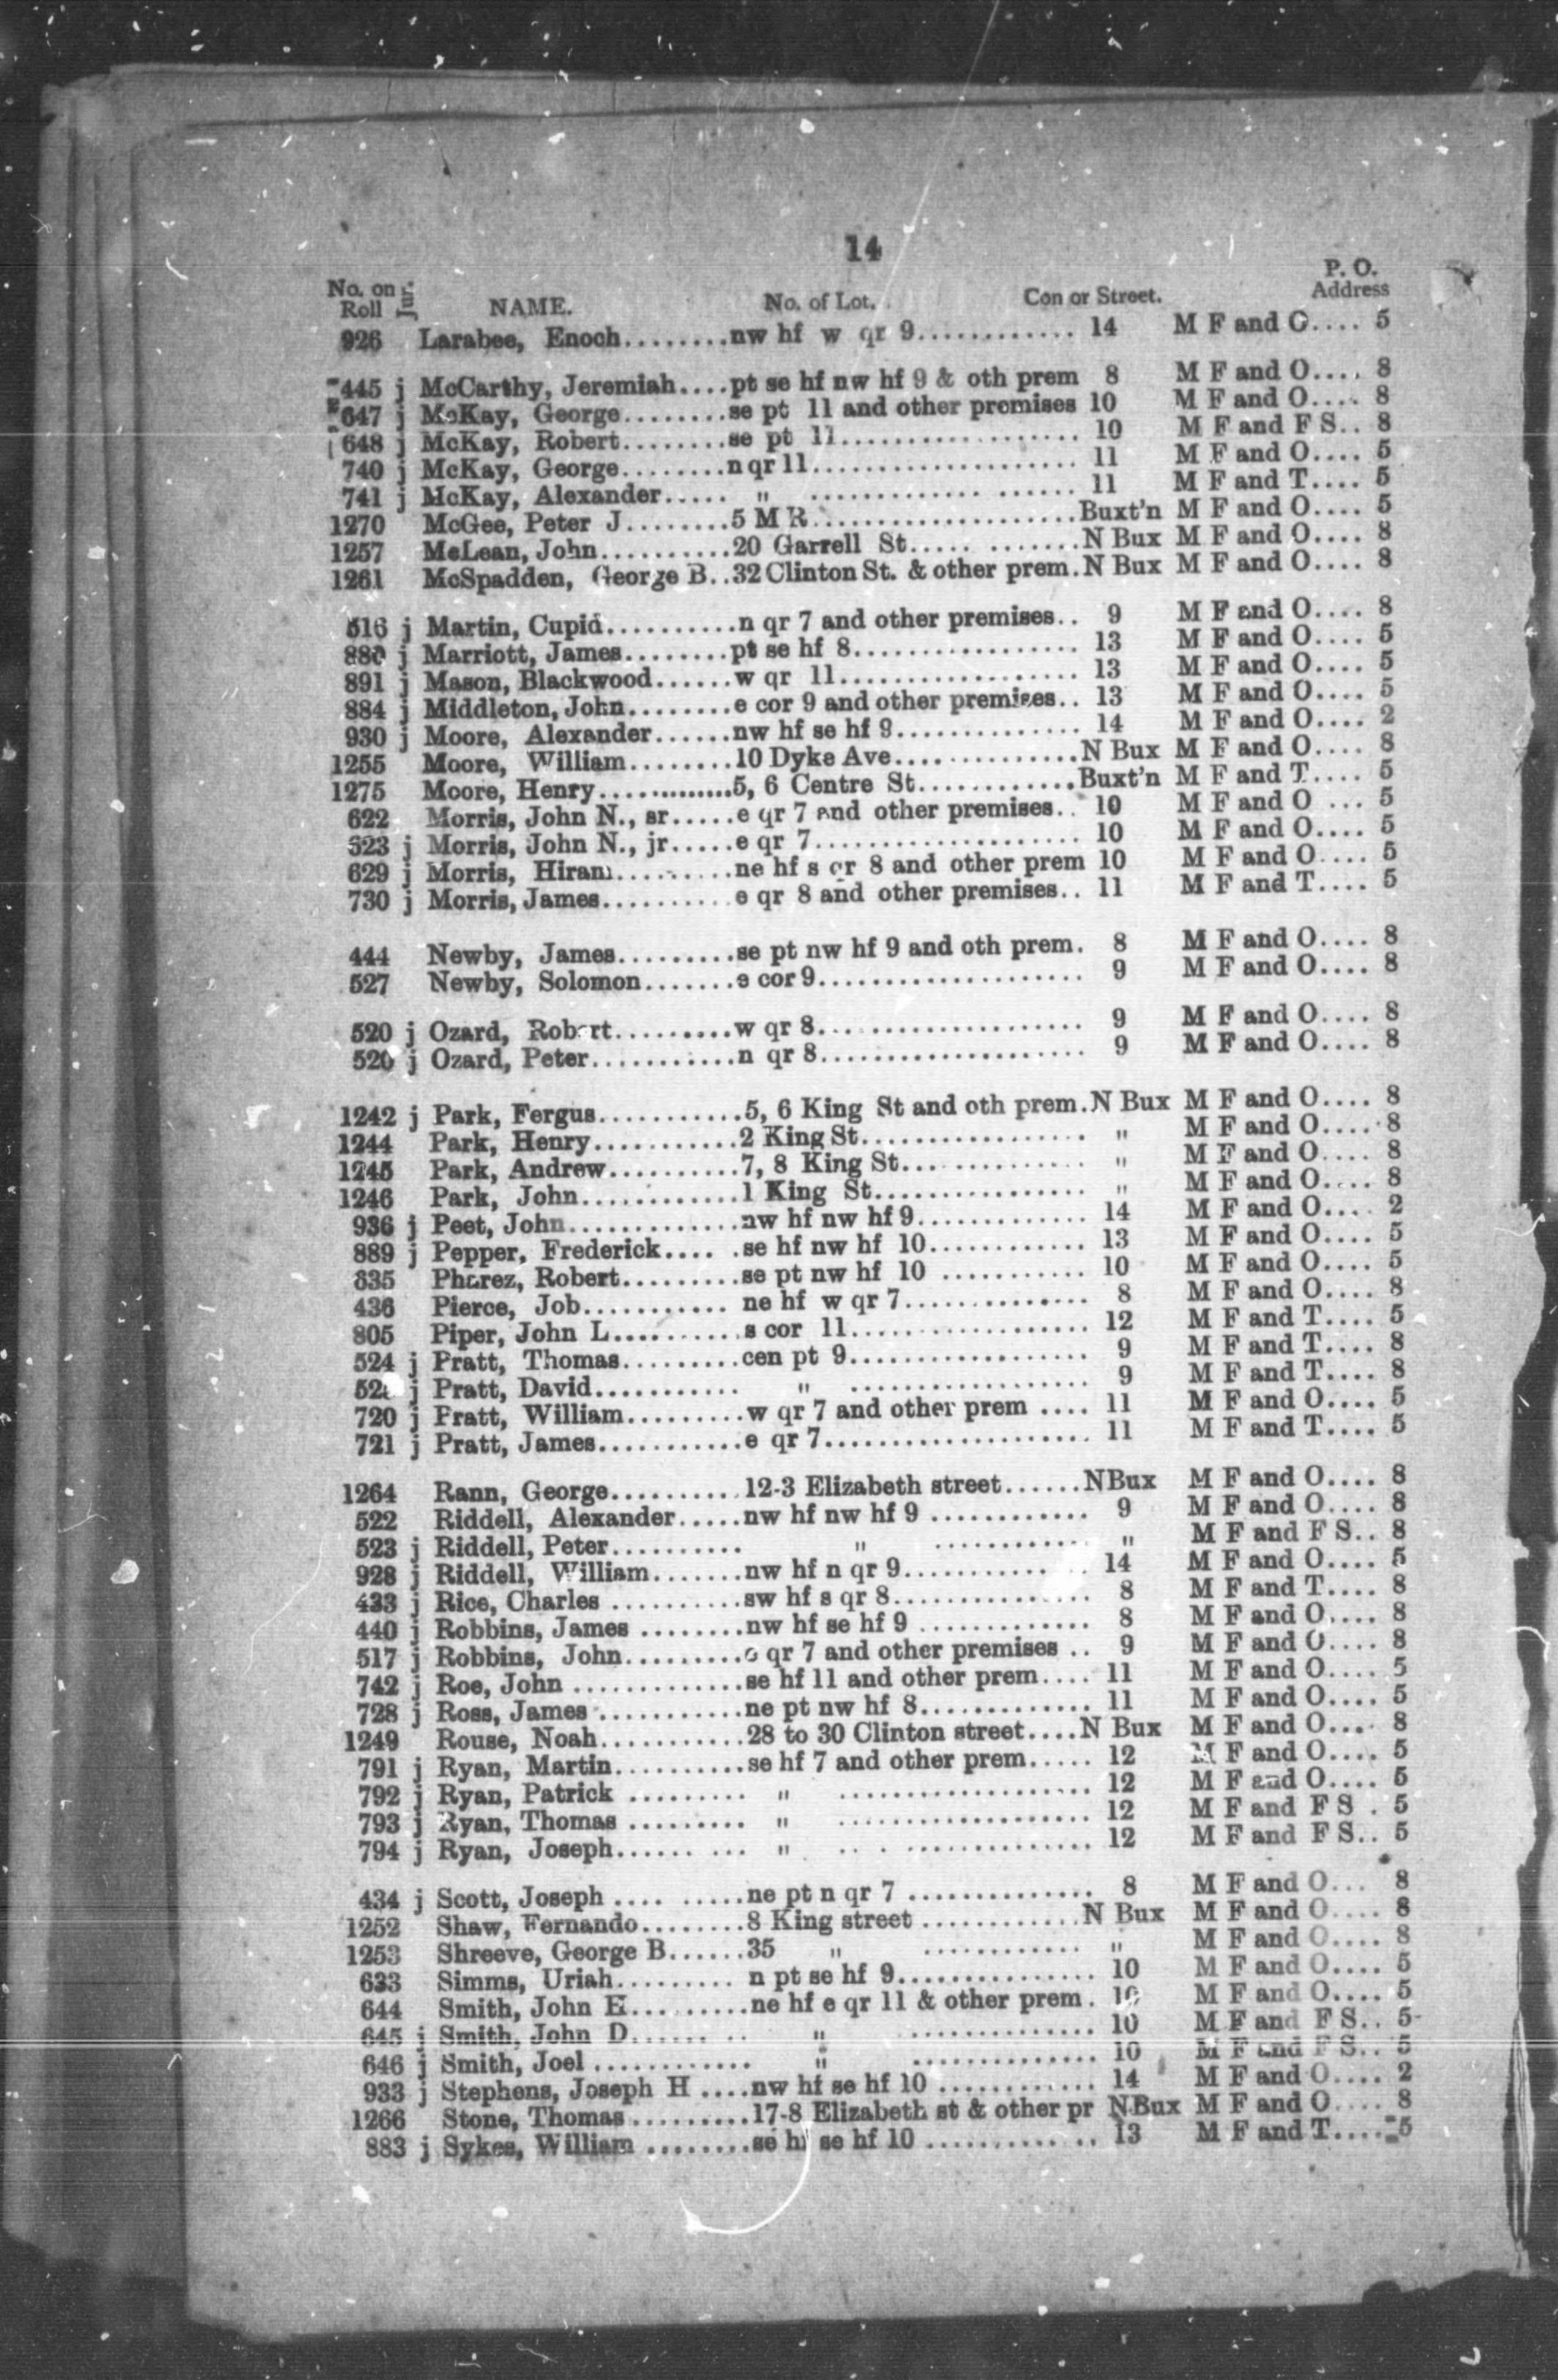 14
No. on Roll Jur. NAME. No. of Lot. Con or Street. P. O. Address
926 Larabee, Enoch........nw hf w qr 9............ 14 M F and O.... 5
445 j McCarthy, Jeremiah....pt se hf nw hf 9 & oth prem 8 M F and O.... 8
647 j McKay, George........se pt 11 and other premises 10 M F and O.... 8
648 j McKay, Robert........se pt 11.................. 10 M F and F S.. 8
740 j McKay, George........n qr 11.................... 11 M F and O.... 5
741 j McKay, Alexander..... " ............. ...... 11 M F and T.... 5
1270 McGee, Peter J........5 M R....................Buxt'n M F and O.... 5
1257 McLean, John..........20 Garrell St..... .......N Bux M F and O.... 8
1261 McSpadden, George B..32 Clinton St. & other prem.N Bux M F and O.... 8
516 j Martin, Cupid..........n qr 7 and other premises.. 9 M F and O.... 8
880 j Marriott, James........pt se hf 8................. 13 M F and O.... 5
891 j Mason, Blackwood......w qr 11.................. 13 M F and O.... 5
884 j Middleton, John........e cor 9 and other premises.. 13 M F and O.... 5
930 j Moore, Alexander......nw hf se hf 9.............. 14 M F and O.... 2
1255 Moore, William........10 Dyke Ave..............N Bux M F and O.... 8
1275 Moore, Henry.............5, 6 Centre St............Buxt'n M F and T.... 5
622 Morris, John N., sr.....e qr 7 and other premises.. 10 M F and O ... 5
523 j Morris, John N., jr.....e qr 7.................... 10 M F and O.... 5
629 j Morris, Hiram.........ne hf s qr 8 and other prem 10 M F and O.... 5
730 j Morris, James..........e qr 8 and other premises.. 11 M F and T.... 5
444 Newby, James.........se pt nw hf 9 and oth prem. 8 M F and O.... 8
527 Newby, Solomon.......e cor 9.................... 9 M F and O.... 8
520 j Ozard, Robert.........w qr 8.................... 9 M F and O.... 8
520 j Ozard, Peter...........n qr 8.................... 9 M F and O.... 8
1242 j Park, Fergus...........5, 6 King St and oth prem.N Bux M F and O.... 8
1244 Park, Henry...........2 King St................. " M F and O.... 8
1245 Park, Andrew..........7, 8 King St.............. " M F and O.... 8
1246 Park, John............1 King St................ " M F and O.... 8
936 j Peet, John.............nw hf nw hf 9............. 14 M F and O.... 2
889 j Pepper, Frederick.... .se hf nw hf 10............ 13 M F and O.... 5
635 Pharez, Robert.........se pt nw hf 10 ........... 10 M F and O.... 5
436 Pierce, Job........... ne hf w qr 7.............. 8 M F and O.... 8
805 Piper, John L..........s cor 11.................. 12 M F and T.... 5
524 j Pratt, Thomas.........cen pt 9.................. 9 M F and T.... 8
j Pratt, David........... " .................. 9 M F and T.... 8
720 j Pratt, William.........w qr 7 and other prem .... 11 M F and O.... 5
721 j Pratt, James...........e qr 7.................... 11 M F and T.... 5
1264 Rann, George..........12-3 Elizabeth street......N Bux M F and O.... 8
522 Riddell, Alexander.....nw hf nw hf 9 ............ 9 M F and O.... 8
523 j Riddell, Peter.......... " ............ " M F and F S.. 8
928 j Riddell, William.......nw hf n qr 9.............. 14 M F and O.... 5
433 j Rice, Charles ..........sw hf s qr 8............... 8 M F and T.... 8
440 j Robbins, James ........nw hf se hf 9 ............. 8 M F and O.... 8
517 j Robbins, John.........e qr 7 and other premises .. 9 M F and O.... 8
742 j Roe, John .............se hf 11 and other prem.... 11 M F and O.... 5
728 j Ross, James ...........ne pt nw hf 8............. 11 M F and O.... 5
1249 Rouse, Noah...........28 to 30 Clinton street....N Bux M F and O.... 8
791 j Ryan, Martin..........se hf 7 and other prem..... 12 M F and O.... 5
792 j Ryan, Patrick ......... " ................... 12 M F and O.... 5
793 j Ryan, Thomas ......... " ................... 12 M F and F S . 5
794 j Ryan, Joseph...... ... " .. . .............. 12 M F and F S.. 5
434 j Scott, Joseph .... ......ne pt n qr 7 .............. 8 M F and O... 8
1252 Shaw, Fernando........8 King street ............N Bux M F and O.... 8
1253 Shreeve, George B......35 " ............ " M F and O.... 8
633 Simms, Uriah......... n pt se hf 9............... 10 M F and O.... 5
644 Smith, John E.........ne hf e qr 11 & other prem. 10 M F and O.... 5
645 j Smith, John D...... .. " .............. 10 M F and F S.. 5
646 j Smith, Joel ............ " .............. 10 M F and F S.. 5
933 j Stephens, Joseph H ....nw hf se hf 10 ............ 14 M F and O.... 2
1266 Stone, Thomas.........17-8 Elizabeth st & other pr N Bux M F and O.... 8
883 j Sykes, William ........se hf se hf 10 ............. 13 M F and T.... 5